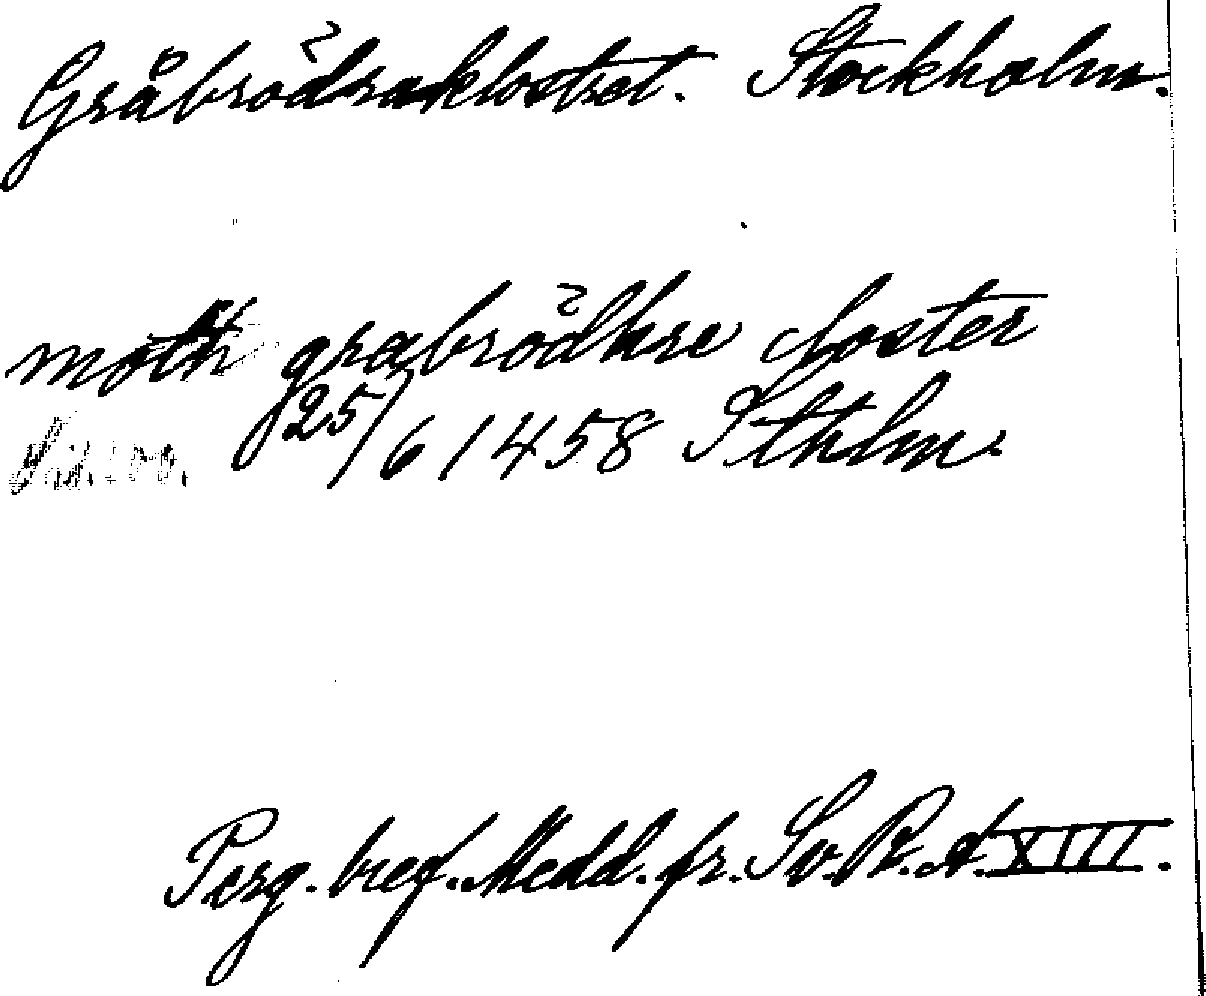 Gråbrödraklostret. Stockholm.
moth grabrödhre closter
25/6 1458 Sthlm.
Perg. bref. Medd. fr. Sv. R. A. XIII.